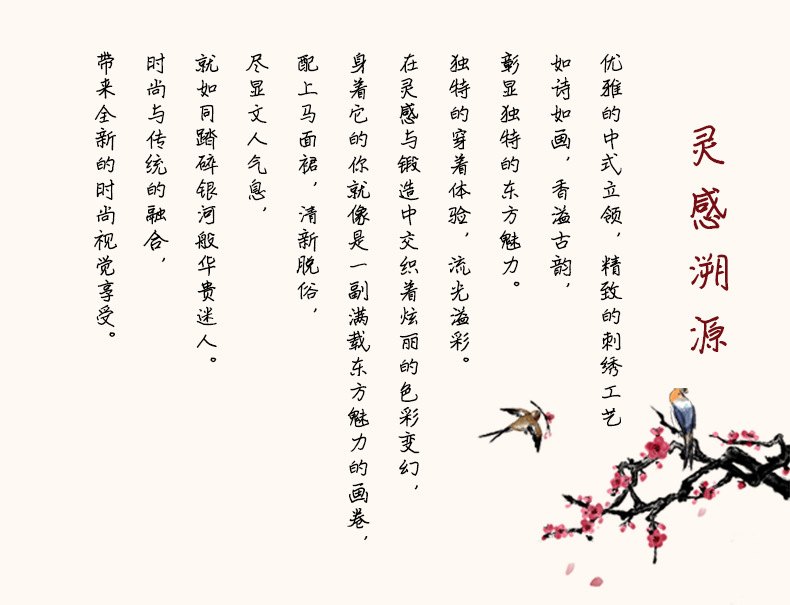 灵感溯源
优雅的中式立领，精致的刺绣工艺
如诗如画，香溢古韵，
彰显独特的东方魅力。
独特的穿着体验，流光溢彩。
在灵感与锻造中交织着炫丽的色彩变幻，
身着它的你就像是一副满载东方魅力的画卷，
配上马面裙，清新脱俗，
尽显文人气息，
就如同踏碎银河般华贵迷人。
时尚与传统的融合，
带来全新的时尚视觉享受。